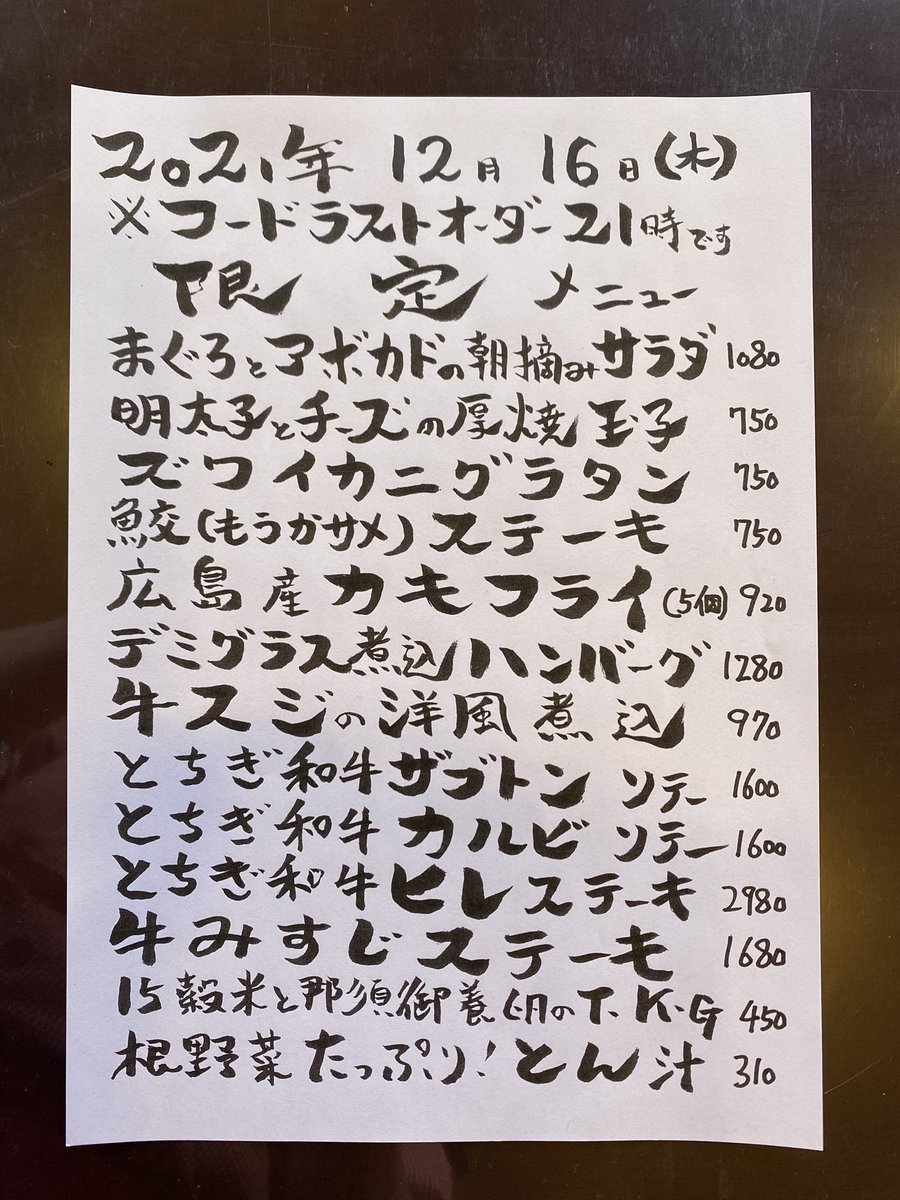 2021年 12月 16日(木)
※フードラストオーダー21時です
限定メニュー
まぐろとアボカドの朝摘みサラダ 1080
明太子とチーズの厚焼玉子 750
ズワイカニグラタン 750
鮫(もうかサメ)ステーキ 750
広島産カキフライ(5個) 920
デミグラス煮込ハンバーグ 1280
牛スジの洋風煮込 970
とちぎ和牛ザブトン ソテー 1600
とちぎ和牛カルビ ソテー 1600
とちぎ和牛ヒレステーキ 2980
牛みすじステーキ 1680
15穀米と那須御養卵のT.K.G 450
根野菜たっぷり!とん汁 310